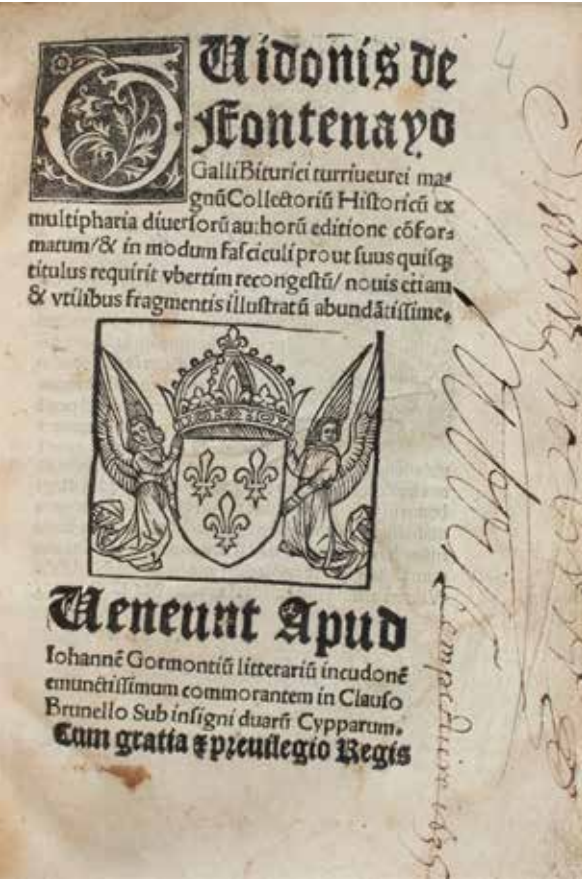 GUidonis de
Fontenayo
Galli Biturici turriueurei ma-
gnū Collectoriū Historicū ex
multipharia diuersorū authorū editione cōfor-
matum/ & in modum fasciculi prout suus quisq;
titulus requirit vbertim recongestū/ nouis etiam
& vtilibus fragmentis illustratū abundātissime.
Ueneunt Apud
Iohannē Gormontiū litterariū incudonē
emunctissimum commorantem in Clauso
Brunello Sub insigni duarū Cypparum.
Cum gratia & preuilegio Regis
4